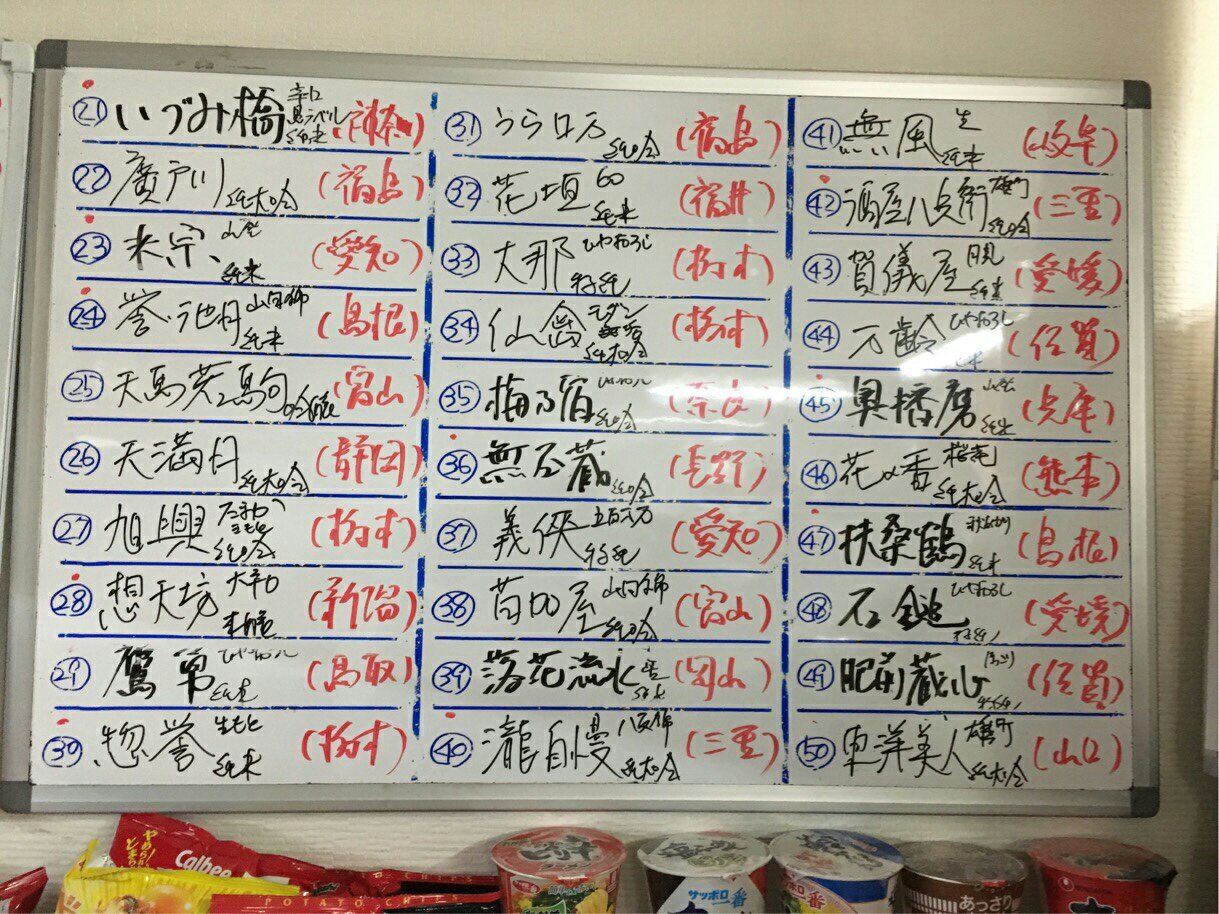 ㉑ いづみ橋 辛口 鳥ラベル 純米 (神奈川)
㉒ 廣戸川 純大吟 (福島)
㉓ 米宗 山廃 純米 (愛知)
㉔ 誉池月 山田錦 純米 (島根)
㉕ 天馬 駒 吟醸 (富山)
㉖ 天満月 純大吟 (静岡)
㉗ 旭興 生もと 純吟 (栃木)
㉘ 想天坊 大辛口 本醸 (新潟)
㉙ 鷹勇 ひやおろし 純米 (鳥取)
㉚ 惣誉 生もと 純米 (栃木)
㉛ うらロ万 純吟 (福島)
㉜ 花垣 60 純米 (福井)
㉝ 大那 ひやおろし 特純 (栃木)
㉞ 仙禽 モダン 純大吟 (栃木)
㉟ 梅乃宿 純吟 (奈良)
㊱ 無石蔵 純吟 (長野)
㊲ 義侠 五百万 特純 (愛知)
㊳ 苗加屋 山田錦 純吟 (富山)
㊴ 落花流水 (岡山)
㊵ 瀧自慢 八反錦 純大吟 (三重)
㊶ 無風 生 純米 (岐阜)
㊷ 酒屋八兵衛 雄町 純吟 (三重)
㊸ 賀儀屋 月見 純米 (愛媛)
㊹ 万齢 ひやおろし 純米 (佐賀)
㊺ 奥播磨 山廃 純米 (兵庫)
㊻ 花の香 桜花 純大吟 (熊本)
㊼ 扶桑鶴 純米 (島根)
㊽ 石鎚 ひやおろし (愛媛)
㊾ 肥前蔵心 (佐賀)
㊿ 東洋美人 雄町 純大吟 (山口)
やめられない
Calbee
POTATO CHIPS
サッポロ一番
サッポロ一番
あっさり